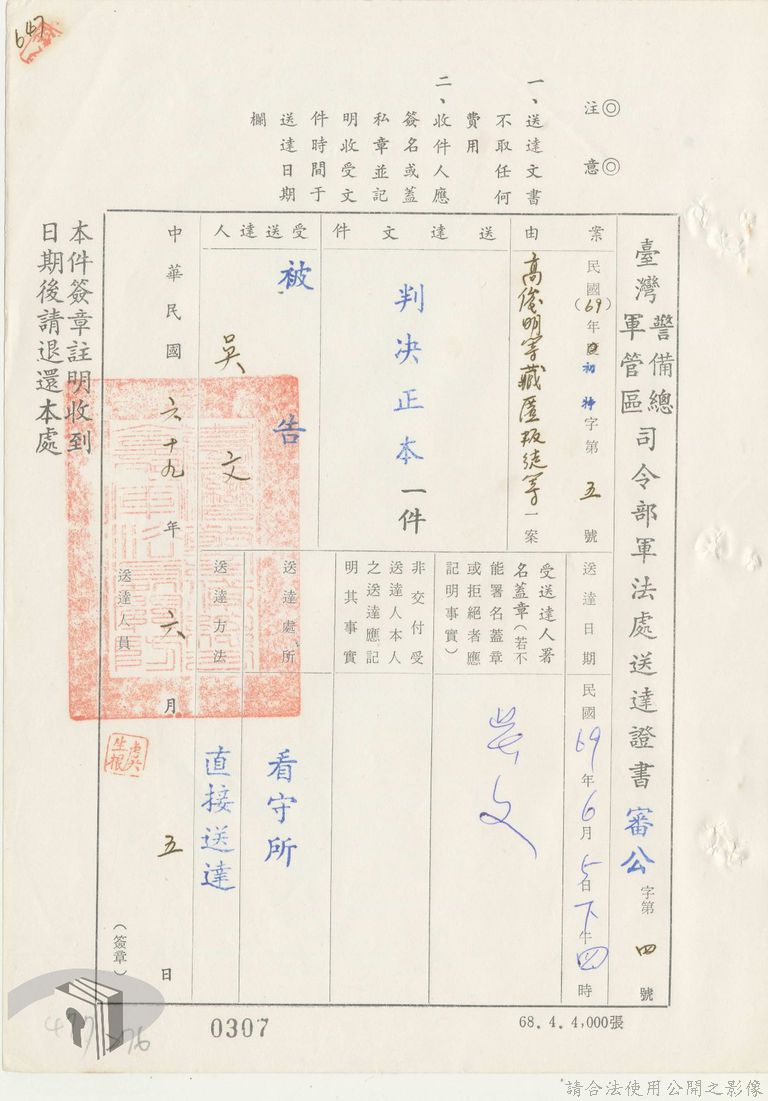 647
◎注
◎意
一、送達文書
不取任何
費用
二、收件人應
簽名或蓋
私章並記
明收受文
件時間于
送達日期
欄
臺灣警備總軍管區司令部軍法處送達證書 審公字第四號
案由
民國(69)年度初特字第五號
高俊明等藏匿叛徒等一案
送達文件
判决正本一件
受送達人
被告
吳文
送達日期
民國69年6月5日下午四時
受送達人署
名蓋章(若不
能署名蓋章
或拒絕者應
記明事實)
吳文
非交付受
送達人本人
之送達應記
明其事實
送達處所
看守所
送達方法
直接送達
中華民國六十九年六月五日
送達人員
(簽章)
本件簽章註明收到
日期後請退還本處
0307
68.4.4,000張
請合法使用公開之影像